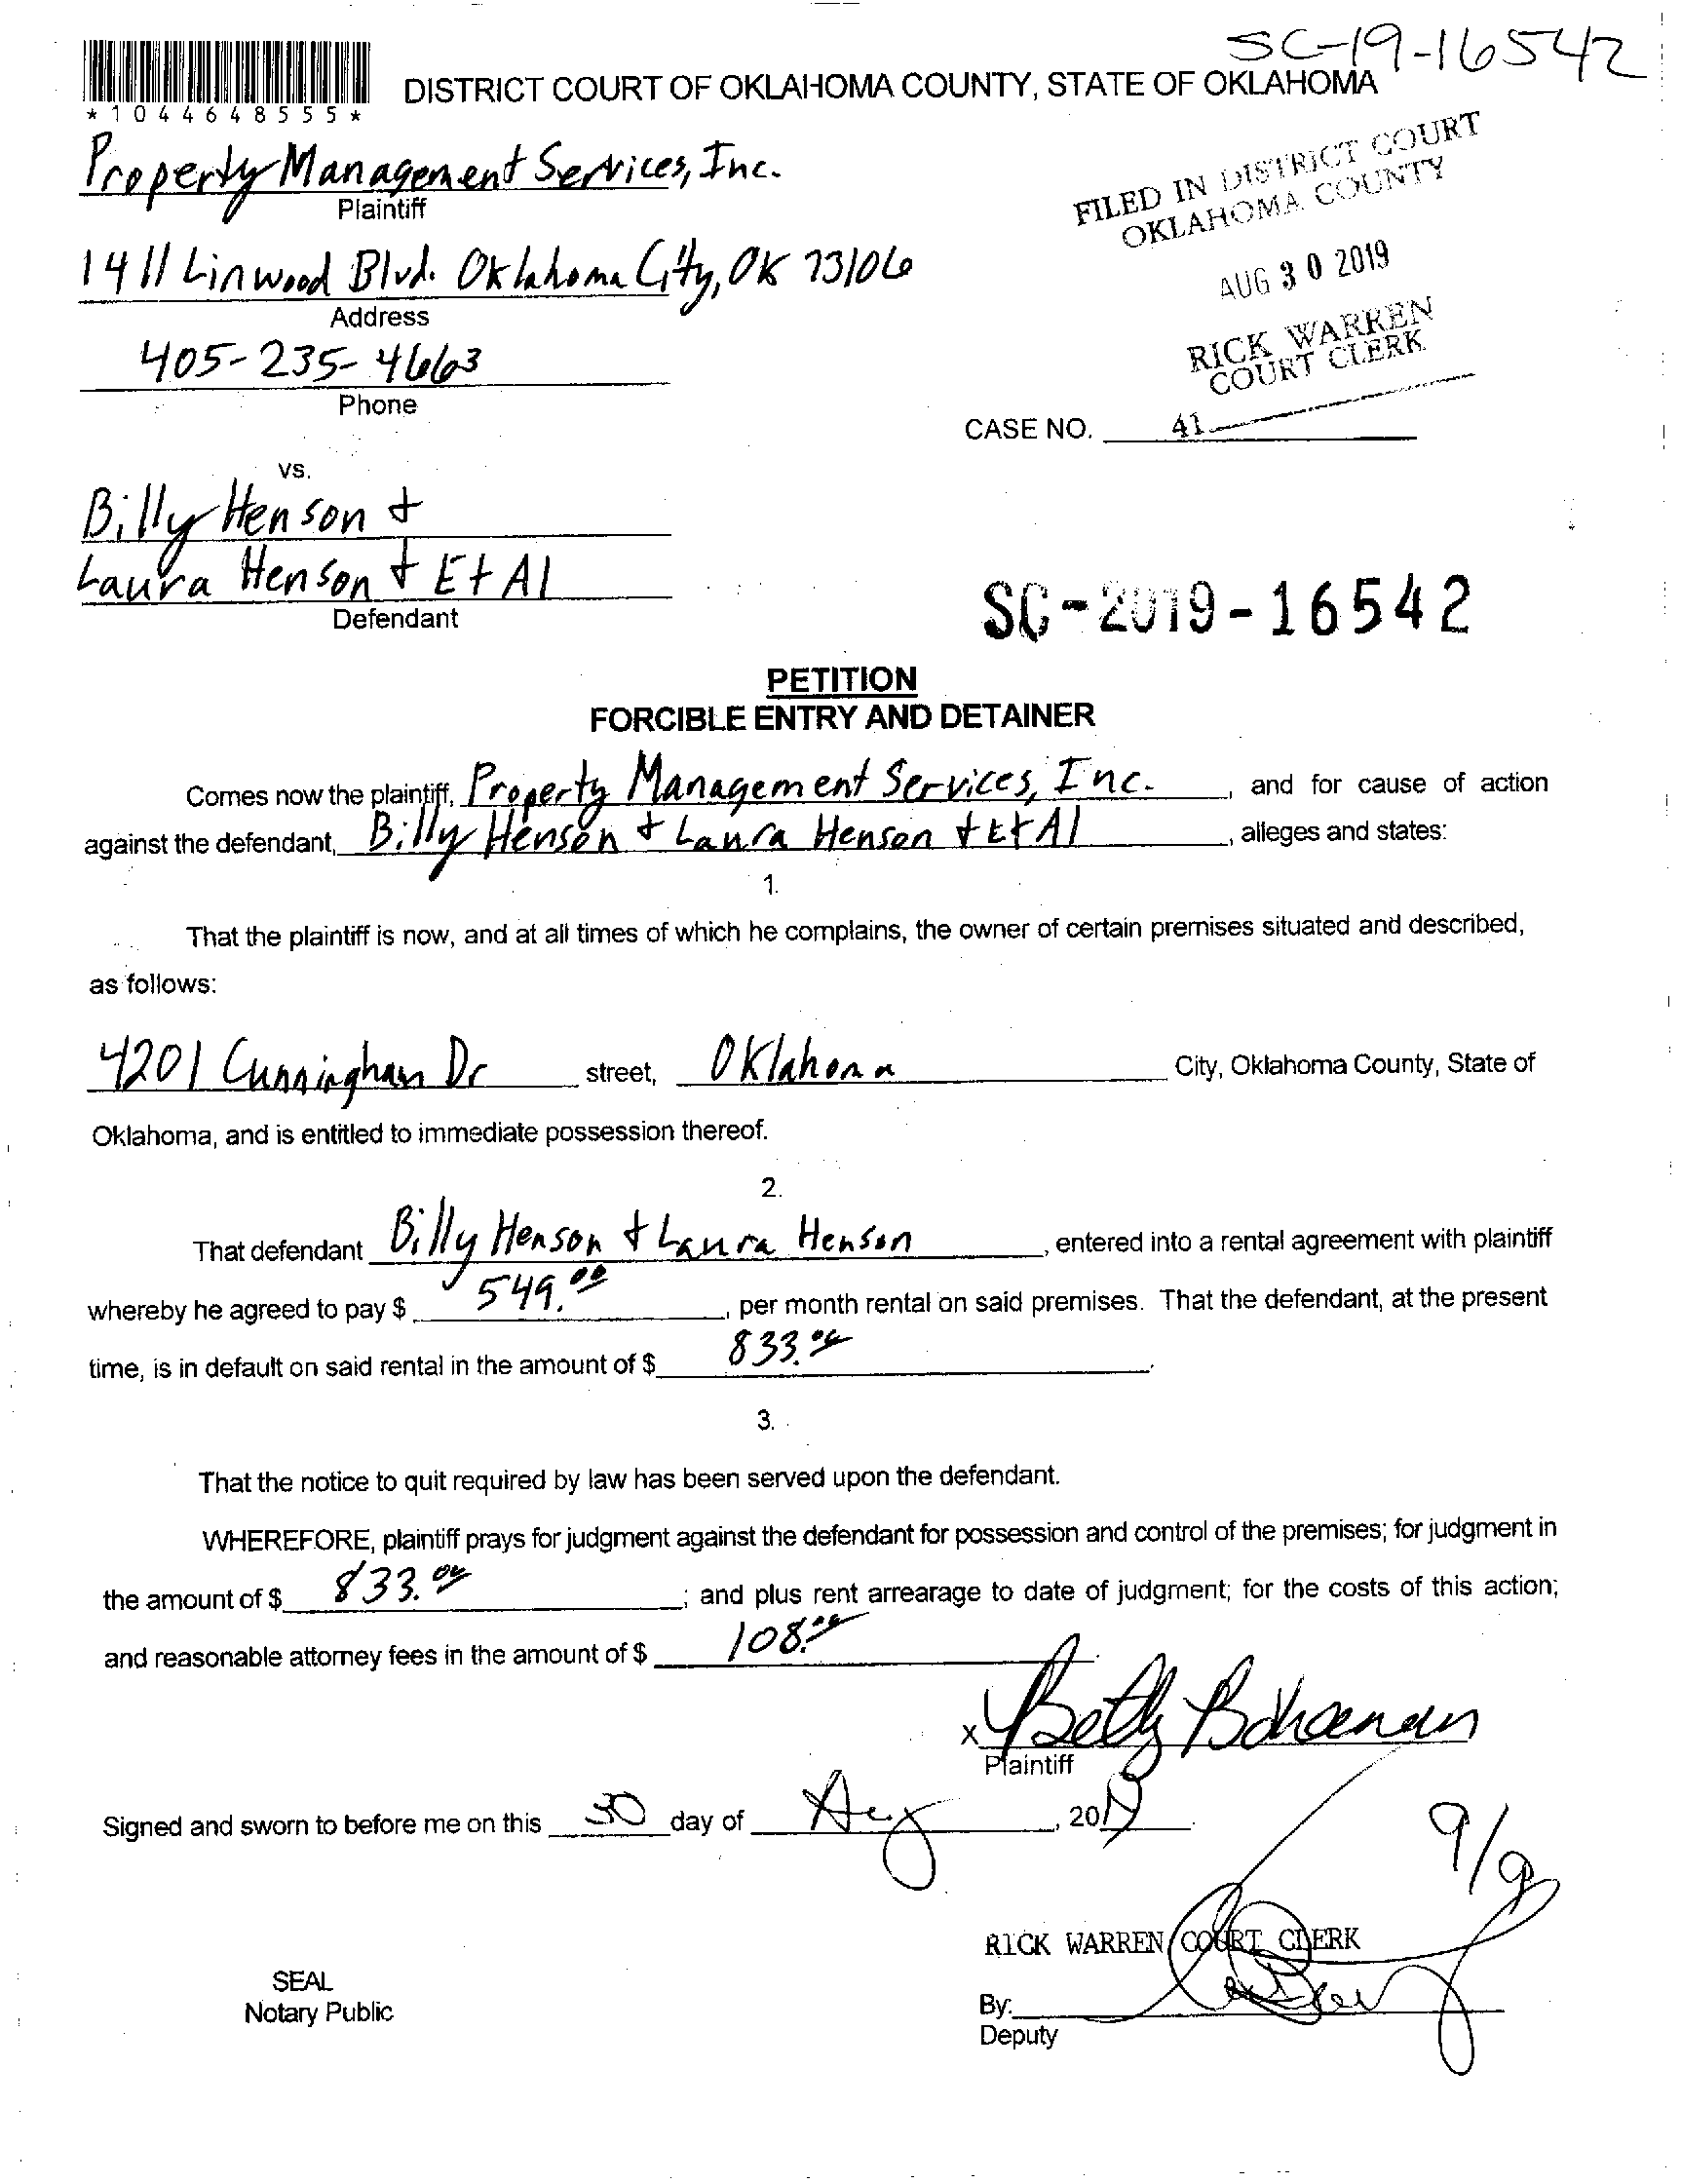 SC-19-16542
DISTRICT COURT OF OKLAHOMA COUNTY, STATE OF OKLAHOMA
*1044648555*
Property Management Services, Inc.
Plaintiff
FILED IN DISTRICT COURT
OKLAHOMA COUNTY
1411 Linwood Blvd. Oklahoma City, OK 73106
Address
AUG 30 2019
405-235-4663
Phone
RICK WARREN
COURT CLERK
CASE NO. 41
vs.
Billy Henson +
Laura Henson + Et Al
Defendant
SC-2019-16542
PETITION
FORCIBLE ENTRY AND DETAINER
Comes now the plaintiff, Property Management Services, Inc. , and for cause of action
against the defendant, Billy Henson + Laura Henson + Et Al , alleges and states:
1.
That the plaintiff is now, and at all times of which he complains, the owner of certain premises situated and described,
as follows:
4201 Cunningham Dr street, Oklahoma City, Oklahoma County, State of
Oklahoma, and is entitled to immediate possession thereof.
2.
That defendant Billy Henson + Laura Henson , entered into a rental agreement with plaintiff
whereby he agreed to pay $ 549.00 , per month rental on said premises. That the defendant, at the present
time, is in default on said rental in the amount of $ 833.00 .
3.
That the notice to quit required by law has been served upon the defendant.
WHEREFORE, plaintiff prays for judgment against the defendant for possession and control of the premises; for judgment in
the amount of $ 833.00 ; and plus rent arrearage to date of judgment; for the costs of this action;
and reasonable attorney fees in the amount of $ 108.00 .
x Betty Bohanan
Plaintiff
Signed and sworn to before me on this 30 day of Aug , 2019.
9/9
RICK WARREN COURT CLERK
SEAL
Notary Public
By:
Deputy